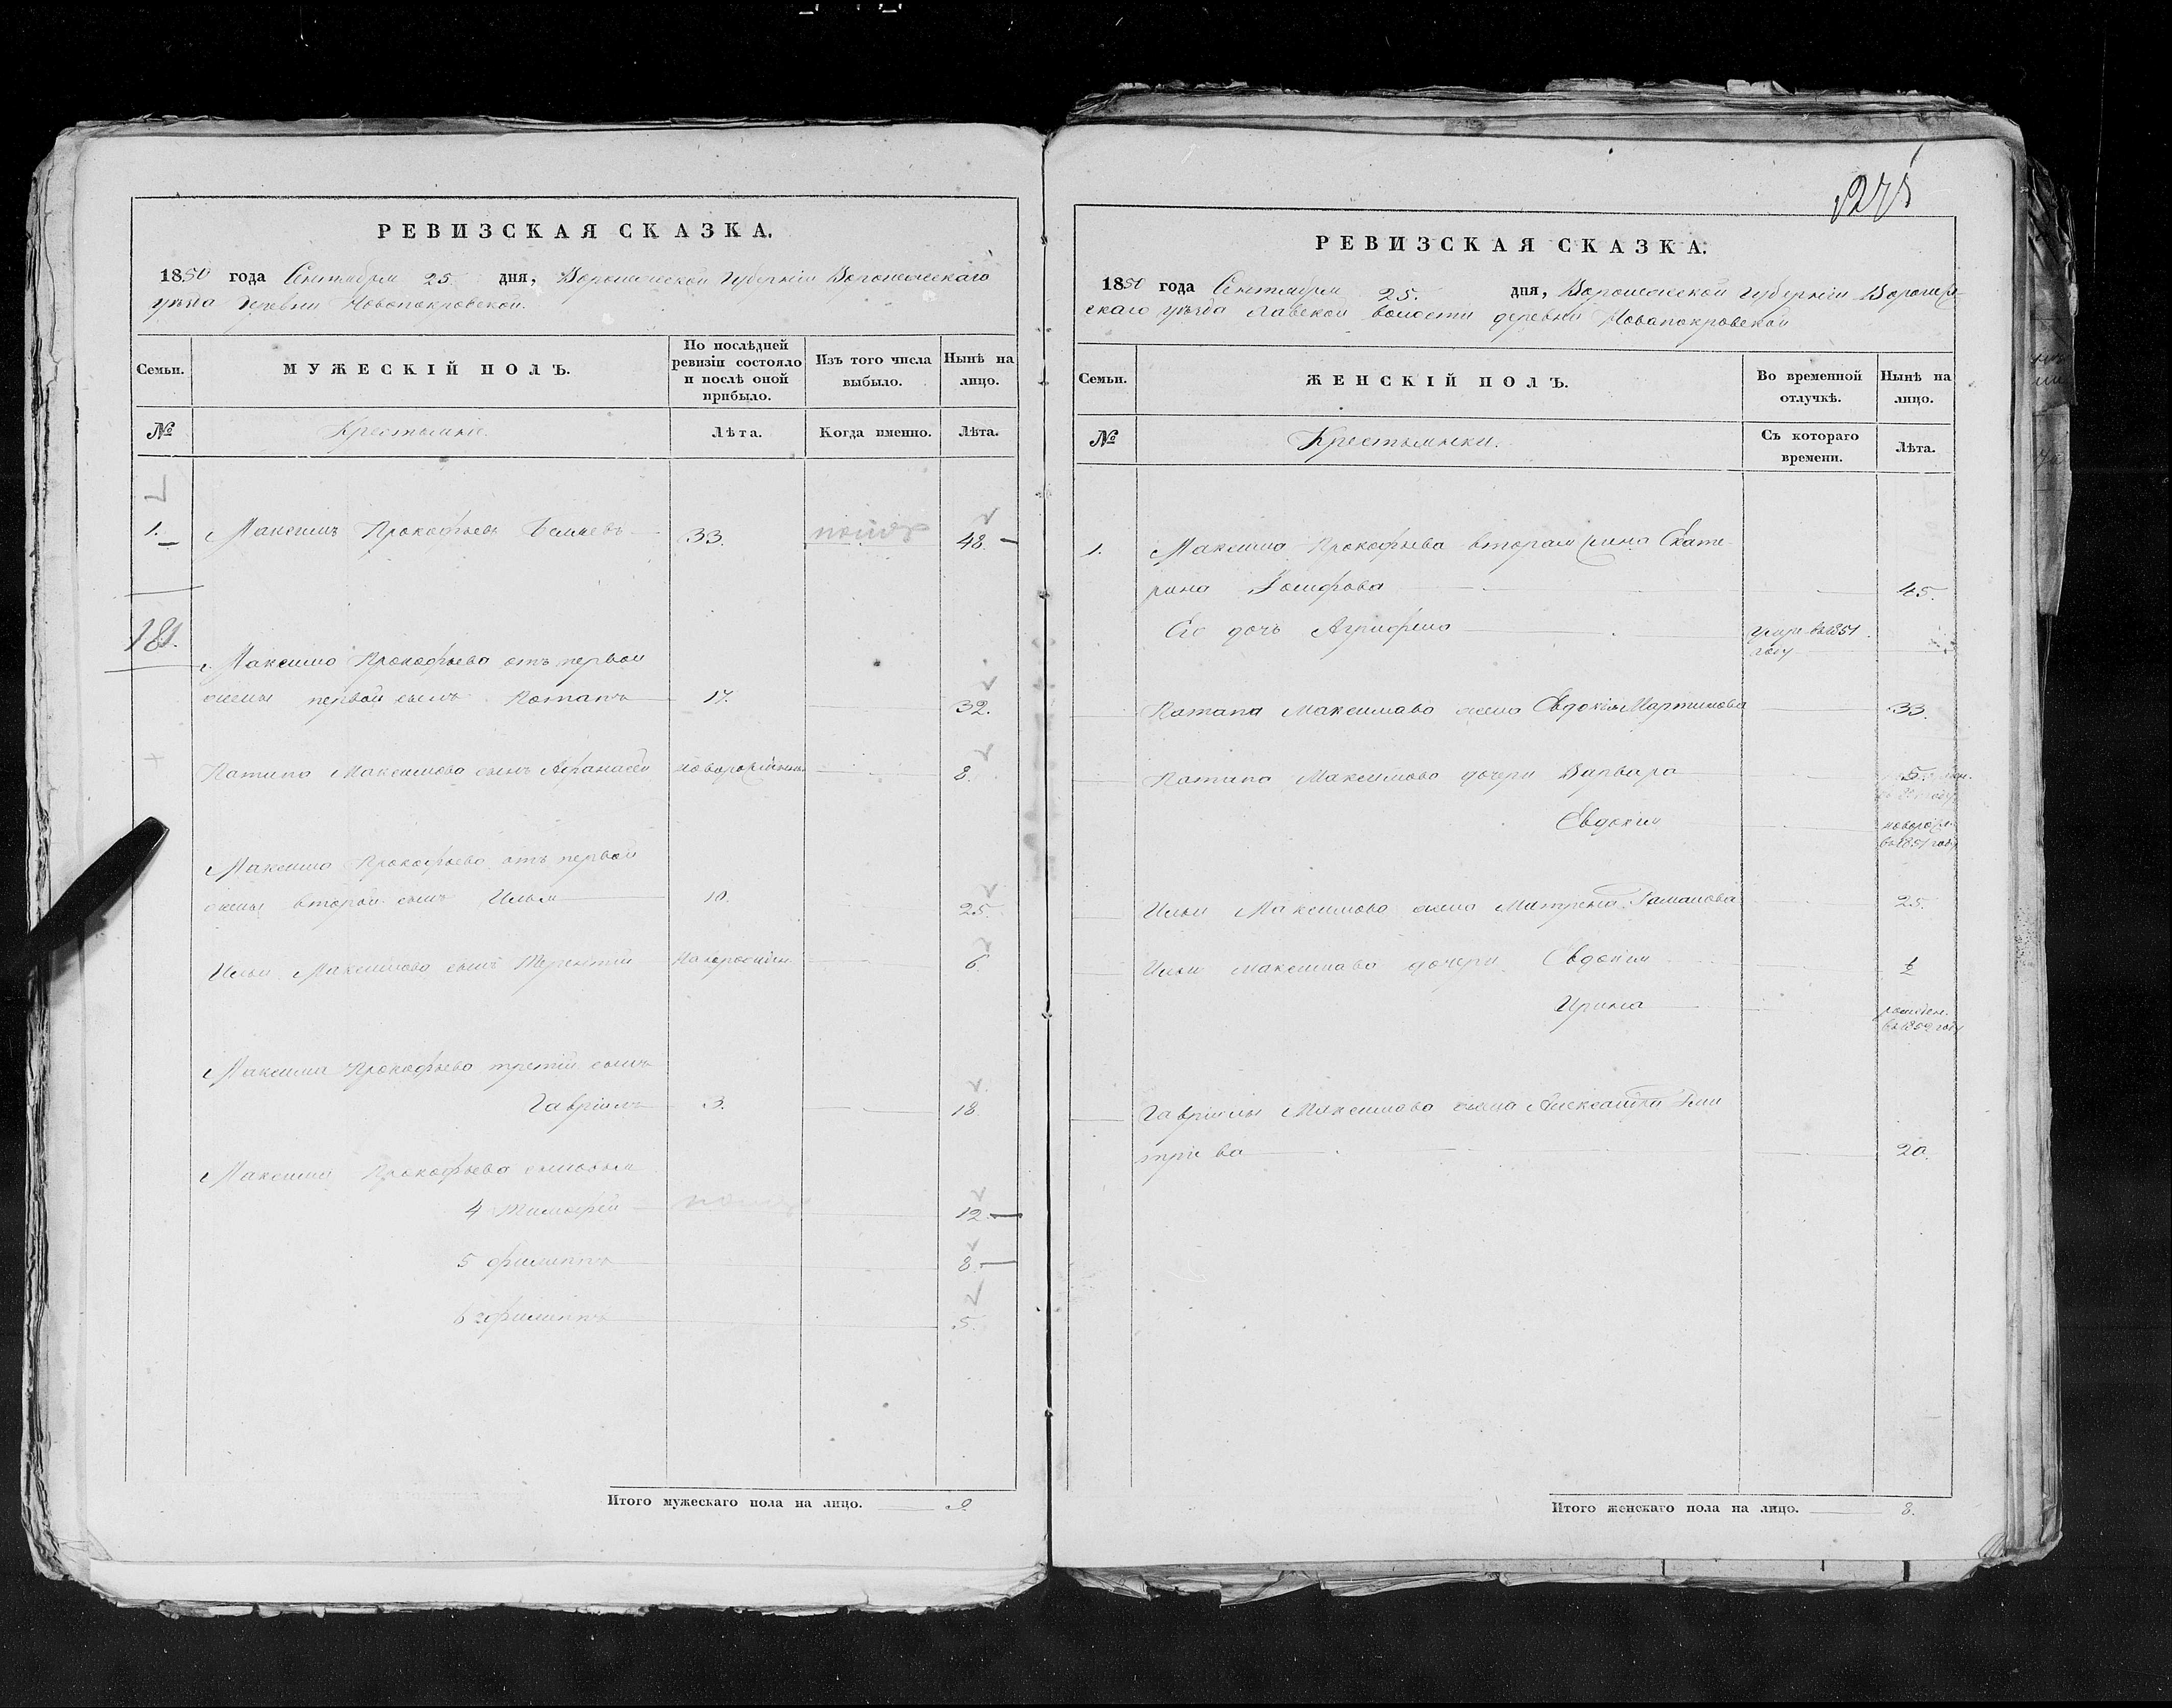 РЕВИЗСКАЯ СКАЗКА.
1850 года Сентября 25 дня, Воронежской губерніи Воронежскаго
уѣзда деревни Новопокровской.
Семьи.
МУЖЕСКІЙ ПОЛЪ.
По послѣдней ревизіи состояло и послѣ оной прибыло.
Изъ того числа выбыло.
Нынѣ на лицо.
№
Крестьяне.
Лѣта.
Когда именно.
Лѣта.
1. Максимъ Прокофьевъ 33. 48.
181.
Максима Прокофьева отъ первой
жены первой сынъ Потапъ 17. 32.
Потапа Максимова сынъ Афанасій новорожденъ 8.
Максима Прокофьева отъ первой
жены второй сынъ Илья 10. 25.
Ильи Максимова сынъ Терентій 6
Максима Прокофьева третій сынъ
Гавріилъ 3. 18
Максима Прокофьева сыновья
4 Тимофей 12.
5 Филиппъ 8.
6 Филиппъ 5.
Итого мужескаго пола на лицо. 9
РЕВИЗСКАЯ СКАЗКА.
1850 года Сентября 25. дня, Воронежской губерніи Воронеж-
скаго уѣзда волости деревни Новапокровской
Семьи.
ЖЕНСКІЙ ПОЛЪ.
Во временной отлучкѣ.
Нынѣ на лицо.
№
Крестьянки.
Съ котораго времени.
Лѣта.
1. Максима Прокофьева вторая жена Екате-
рина Іосифова 45.
Его дочь Агрифена въ 1851
году
Потапа Максимава жена Евдокія Мартинова 33.
Потапа Максимова дочери Варвара 5.
Евдокія новорож.
въ 1851 году
Ильи Максимова жена Матрена Раманова 25.
Ильи Максимава дочери Евдокия 1/2
Ирина
Гавріилы Максимова жена Александра Дми
тріева 20.
Итого женскаго пола на лицо. 8.